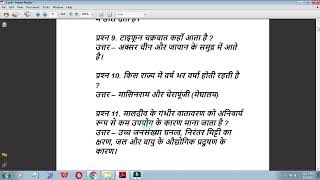 प्रश्न 9. टाइफून चक्रवात कहाँ आता है ?
उत्तर – अक्सर चीन और जापान के समुद्र में आते
हैं।
प्रश्न 10. किस राज्य में वर्ष भर वर्षा होती रहती है
?
उत्तर – मासिनराम और चेरापूंजी (मेघालय)
प्रश्न 11. मालदीव के गंभीर वातावरण को अनिवार्य
रूप से कम उपयोग के कारण माना जाता है ?
उत्तर – उच्च जनसंख्या घनत्व, निरंतर मिट्टी का
क्षरण, जल और वायु के औद्योगिक प्रदूषण के
कारण।